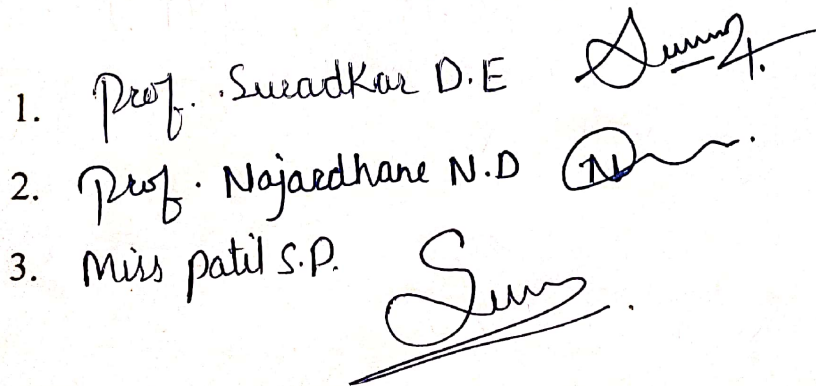 1. Prof. Suradkar D.E
2. Prof. Najardhane N.D
3. Miss patil S.P.